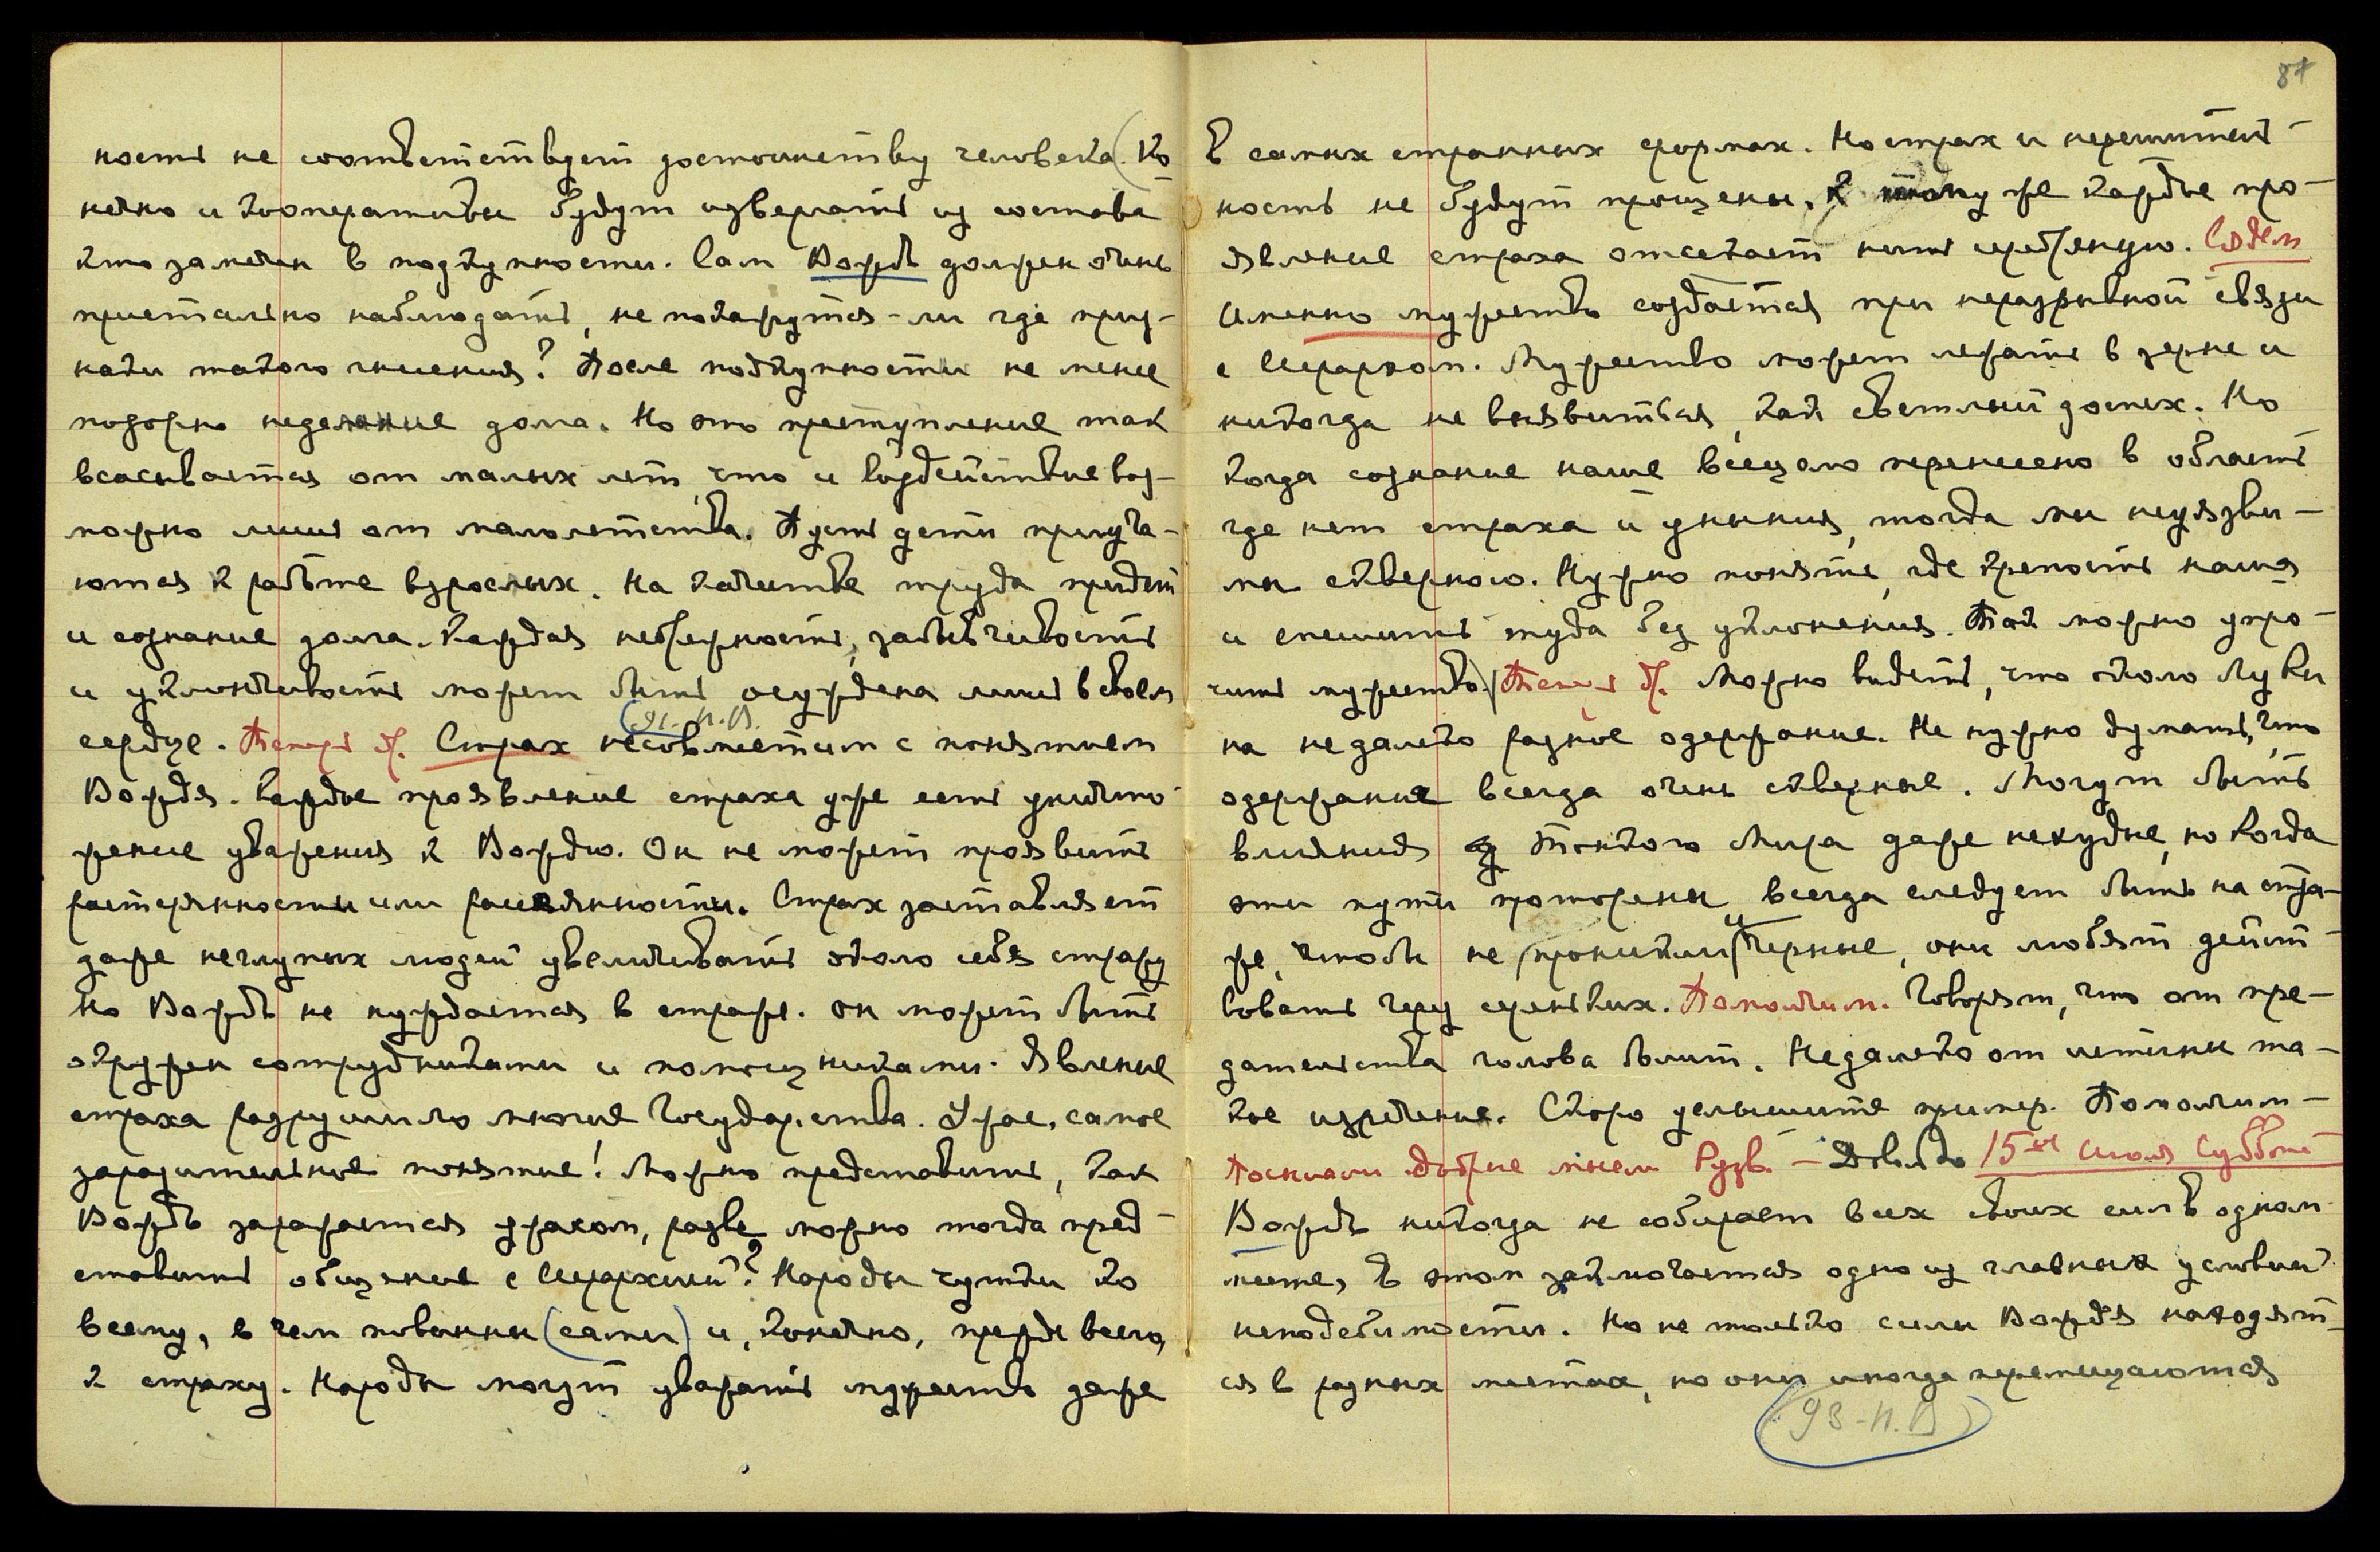 ность не соответствует достоинству человека. (Ко-
нечно и кооперативы будут извергать из состава
кто замечен в подкупности. Сам Вождь должен очень
пристально наблюдать, не покажутся-ли где приз-
наки такого гниения? После подкупности не менее
позорно неделание долга. Но это преступление так
всасывается от малых лет, что и воздействие воз-
можно лишь от малолетства. Пусть дети приуча-
ются к работе взрослых. На качестве труда придет
и сознание долга. Каждая небрежность, забывчивость
и уклончивость может быть осуждена лишь в своем
(91-Н.В.
сердце. Теперь др. Страх несовместим с понятием
Вождя. Каждое проявление страха уже есть уничто-
жение уважения к Вождю. Он не может проявить
растерянности или рассеянности. Страх заставляет
даже неглупых людей увеличивать около себя стражу
но Вождь не нуждается в страже. он может быть
окружен сотрудниками и помощниками. Явление
страха разрушило многие Государства. Ужас, самое
заразительное понятие! Можно представить, как
Вождь заражается ужасом, разве можно тогда пред-
ставить общение с Иерархией? Народы чутки ко
всему, в чем повинны (сами) и, конечно, прежде всего,
к страху. Народы могут уважать мужество даже
87
в самых странных формах. Но страх и нерешитель-
ность не будут прощены, К тому же каждое про-
явление страха отсекает нить серебряную.
Именно мужество создается при неразрывной связи
с Иерархом. Мужество может лежать в зерне и
никогда не выявиться, как светлый доспех. Но
когда сознание наше всецело перенесено в область
где нет страха и уныния, тогда мы неуязви-
мы скверною. Нужно понять, где крепость наша
и спешить туда без уклонения. Так можно упро-
чить мужество.) Теперь др. Можно видеть, что около Луки
на недалеко разное одержание. Не нужно думать, что
одержание всегда очень скверное. Могут быть
влияния из Тонкого Мира даже нехудые, но когда
эти пути проторены всегда следует быть на стра-
же, чтобы не проникли и черные, они любят дейст-
вовать через средних. Помолчим. Говорят, что от пре-
дательства голова болит. Недалеко от истины та-
кое изречение. Скоро услышите пример. Помолчим-
Пошлем добрые мысли Рузв. - Довольно 15ое Июля Суббота
Вождь никогда не собирает всех своих сил в одном
месте, В этом заключается одно из главных условий
непобедимости. Но не только силы Вождя находят-
ся в разных местах, но они иногда перемещаются
(93-Н.В)